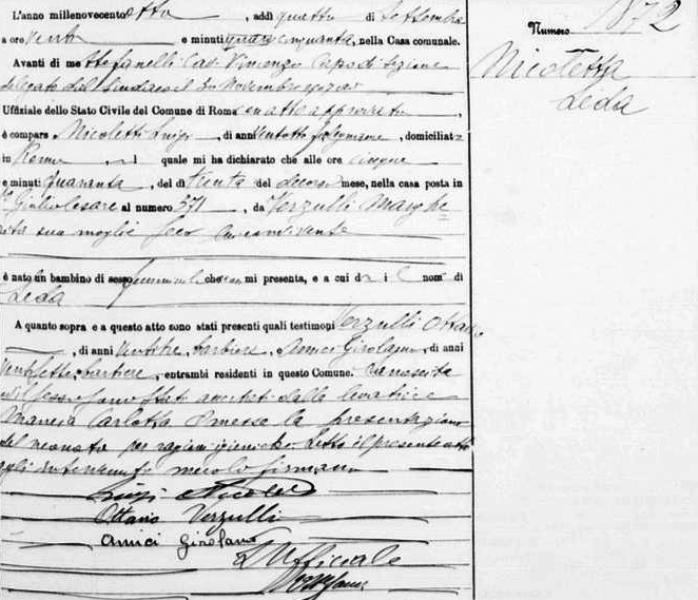 Numero 1872
Nicoletta
Leda
L'anno millenovecento otto, addì quattro di Settembre
a ore venti e minuti cinquanta, nella Casa comunale.
Avanti di me Stefanelli Cav. Vincenzo Capo di Sezione
delegato dal Sindaco il Novembre
Uffiziale dello Stato Civile del Comune di Roma con atto approvato
è comparso Nicoletti Luigi, di anni ventotto falegname, domiciliato
in Roma, il quale mi ha dichiarato che alle ore cinque
e minuti quaranta, del dì trenta del decorso mese, nella casa posta in
Giulio Cesare al numero 371, da Verzulli Marghe
rita sua moglie seco convivente
è nato un bambino di sesso femminile che non mi presenta, e a cui dà i l nome di
Leda
A quanto sopra e a questo atto sono stati presenti quali testimoni Verzulli Ottavio
, di anni ventitre, barbiere, e Amici Girolamo, di anni
ventisette, barbiere, entrambi residenti in questo Comune. La nascita
ed il sesso sono stati accertati dalla levatrice
Carlotta Omessa la presentazione
del neonato per ragioni igieniche. Letto il presente atto
agli intervenuti meco lo firmano
Luigi Nicoletti
Ottavio Verzulli
Amici Girolamo
L'Ufficiale